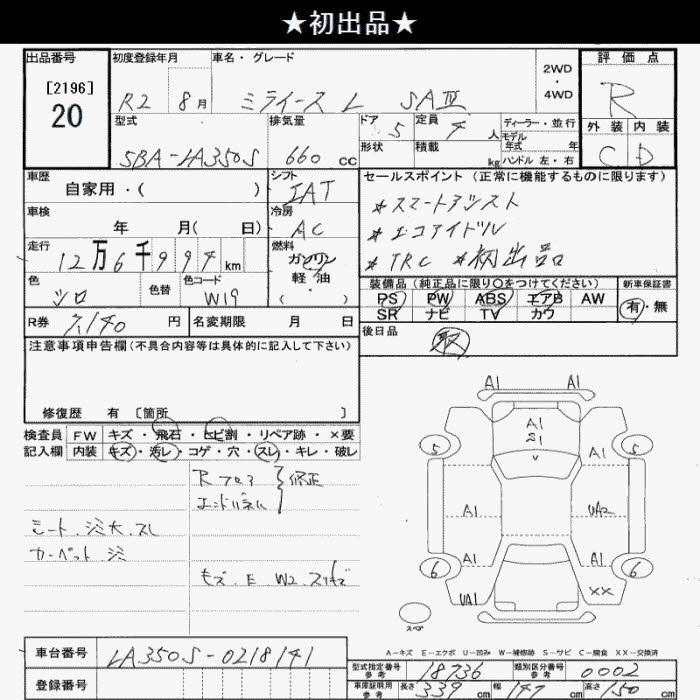 ★初出品★
出品番号
[2196]
20
初度登録年月
R2 8月
車名・グレード
ミライース L SAⅢ
2WD
・
4WD
評価点
R
外装 内装
C D
型式
5BA-LA350S
排気量
660 cc
ドア
5
形状
定員
4 人
積載
kg
ディーラー・並行
モデル
年式 年
ハンドル 左・右
車歴
自家用・( )
シフト
IAT
車検
年 月( 日)
冷房
AC
走行
12万6千994km
燃料
ガソリン
軽・油
( ・ )
色
シロ
色替
色コード
W19
R券
7,140 円
名変期限 月 日
セールスポイント (正常に機能するものに限ります)
*スマートアシスト
*エコアイドル
*TRC *初出品
装備品(純正品に限り○をつけてください)
PS PW ABS エアB AW
SR ナビ TV カワ
新車保証書
有・無
後日品
取
注意事項申告欄(不具合内容等は具体的に記入して下さい)
修復歴 有 〔箇所 〕
検査員
記入欄
FW キズ・飛石・ヒビ割・リペア跡・×要
内装 キズ・汚レ・コゲ・穴・スレ・キレ・破レ
Rフロア
エンドパネル
修正
シート.シミ大.スレ
カーペット シミ
キズ.E W2.スリキズ
A1 A1
A1
5 5
A1
A1
UA2
A1 A1
6 6
UA1
XX
スペア
A-キズ E-エクボ U-凹み W-補修跡 S-サビ C-腐食 XX-交換済
車台番号
LA350S-0218141
登録番号
型式指定番号
参考
18736
類別区分番号
参考
0002
車庫証明用
参考
長さ 339 cm 幅 147 cm 高さ 150 cm